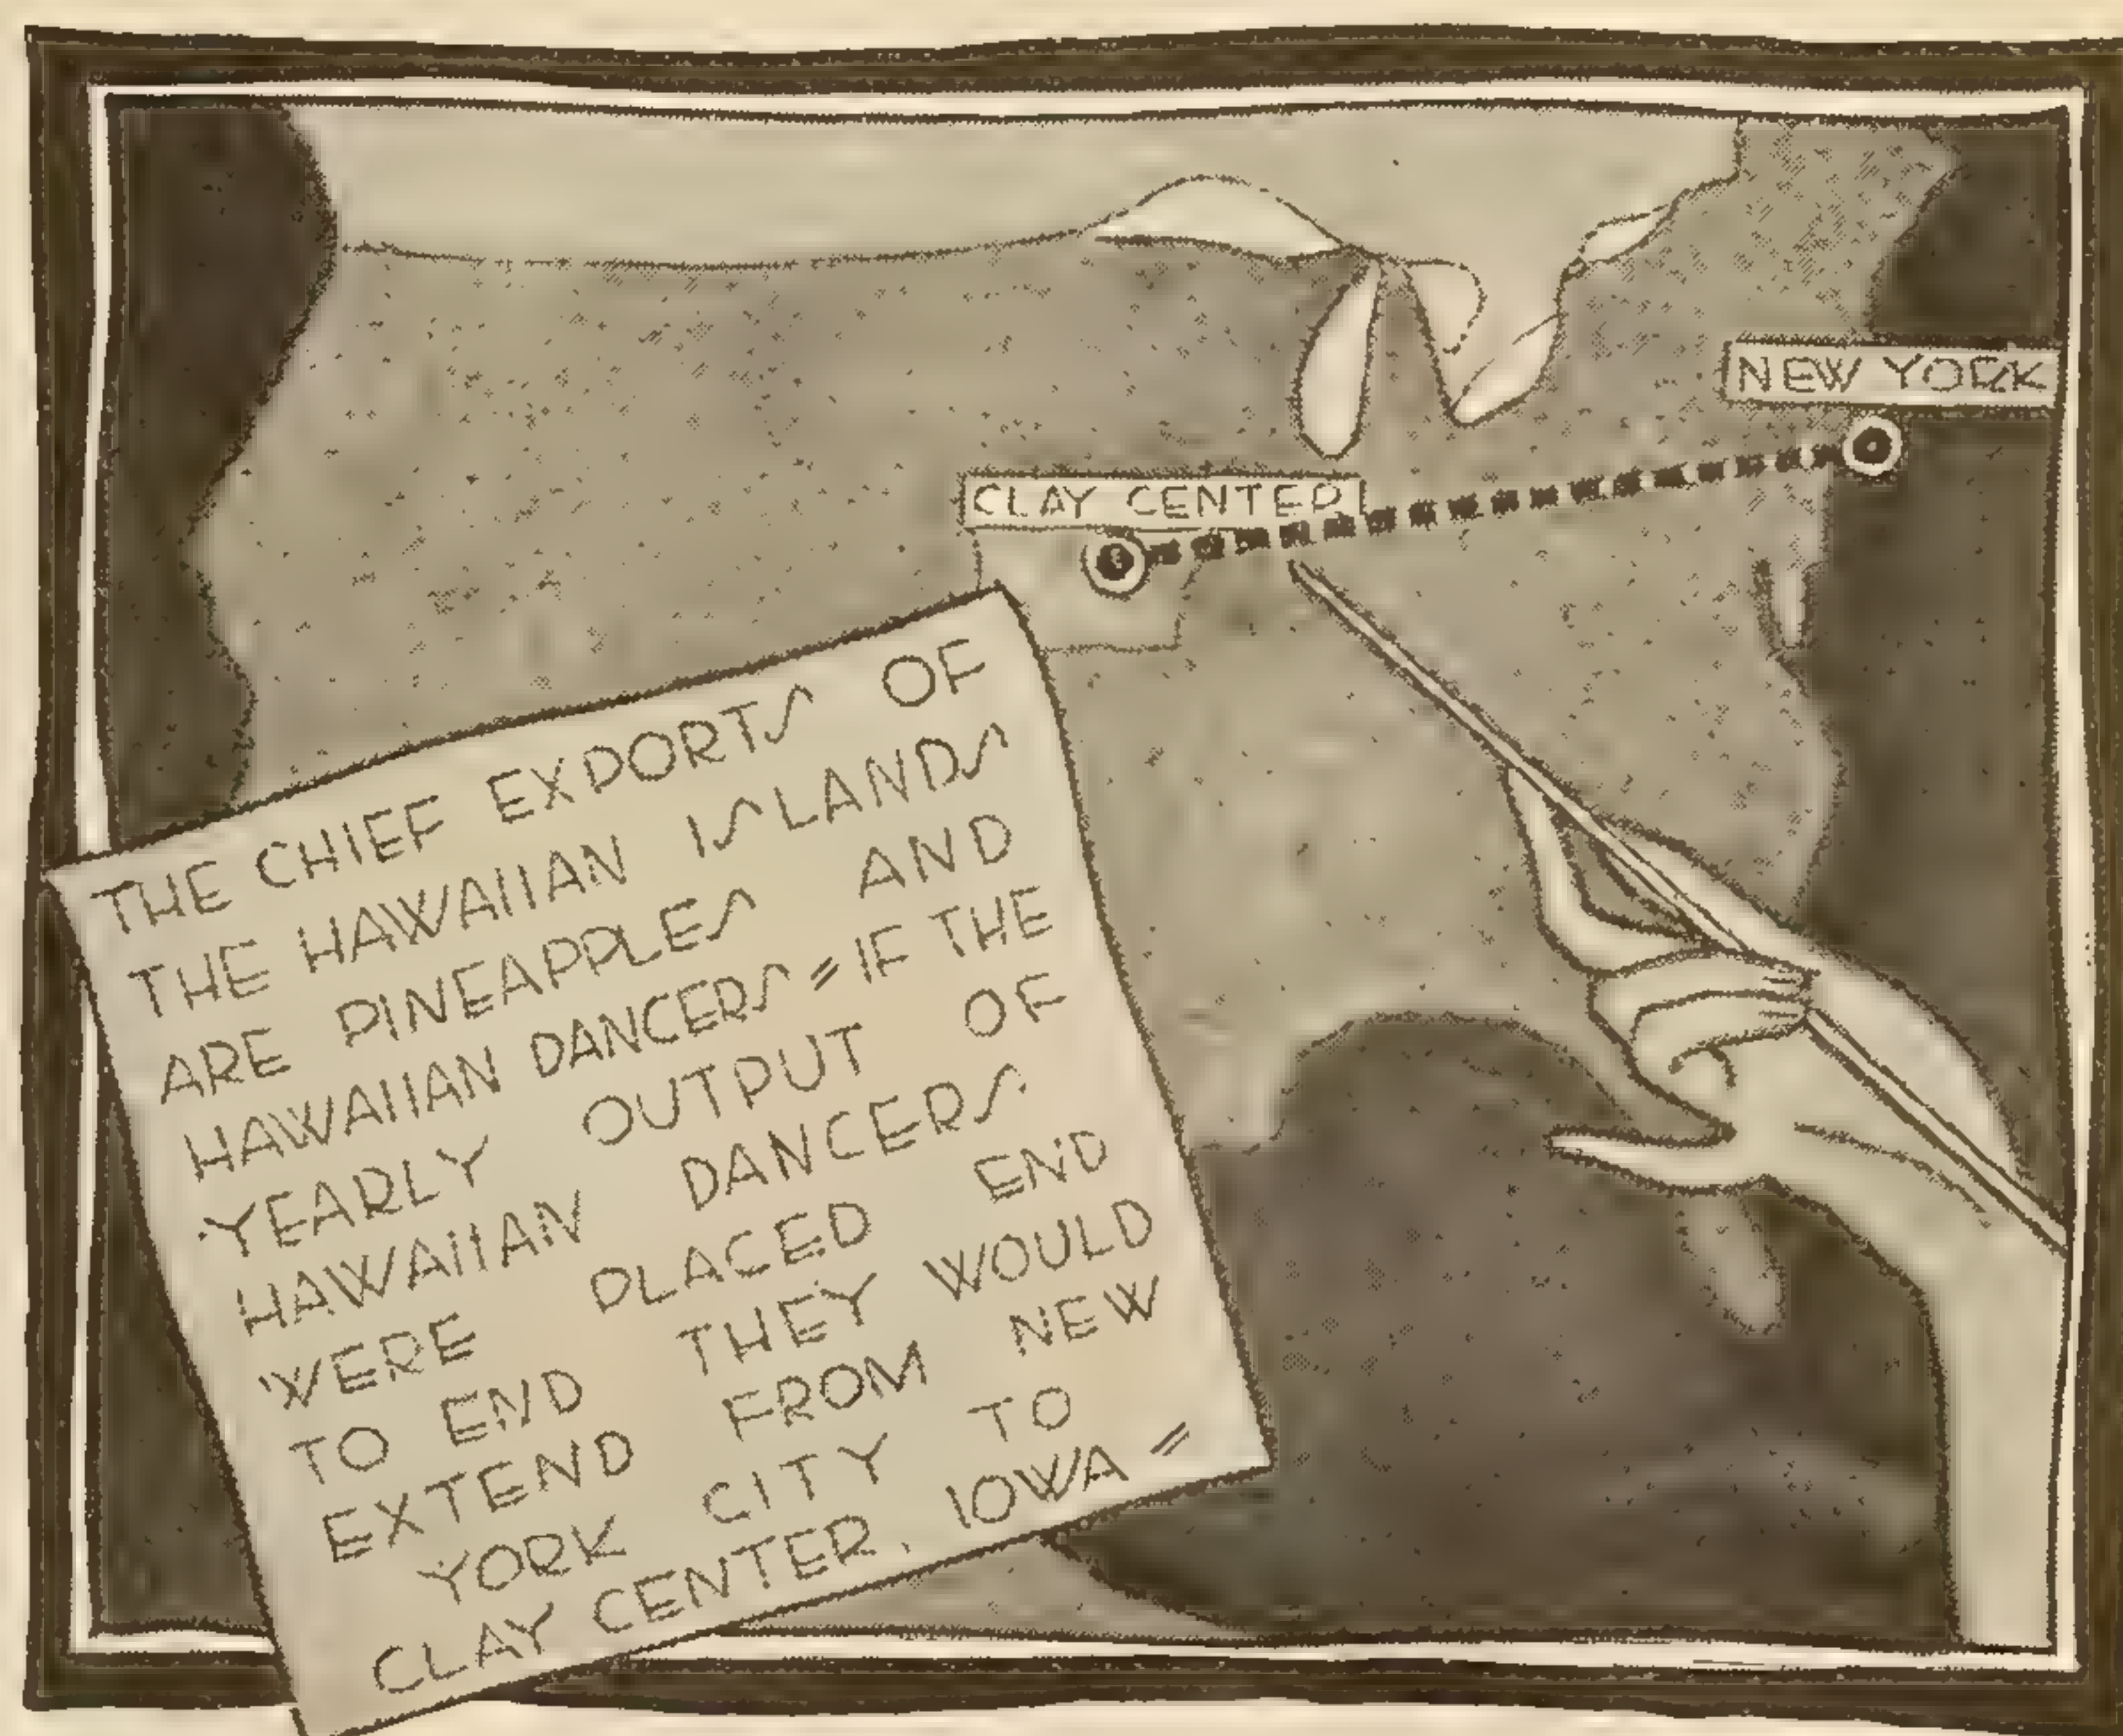 NEW YORK
CLAY CENTER
THE CHIEF EXPORTS OF
THE HAWAIIAN ISLANDS
ARE PINEAPPLES AND
HAWAIIAN DANCERS = IF THE
YEARLY OUTPUT OF
HAWAIIAN DANCERS
WERE PLACED END
TO END THEY WOULD
EXTEND FROM NEW
YORK CITY TO
CLAY CENTER, IOWA =